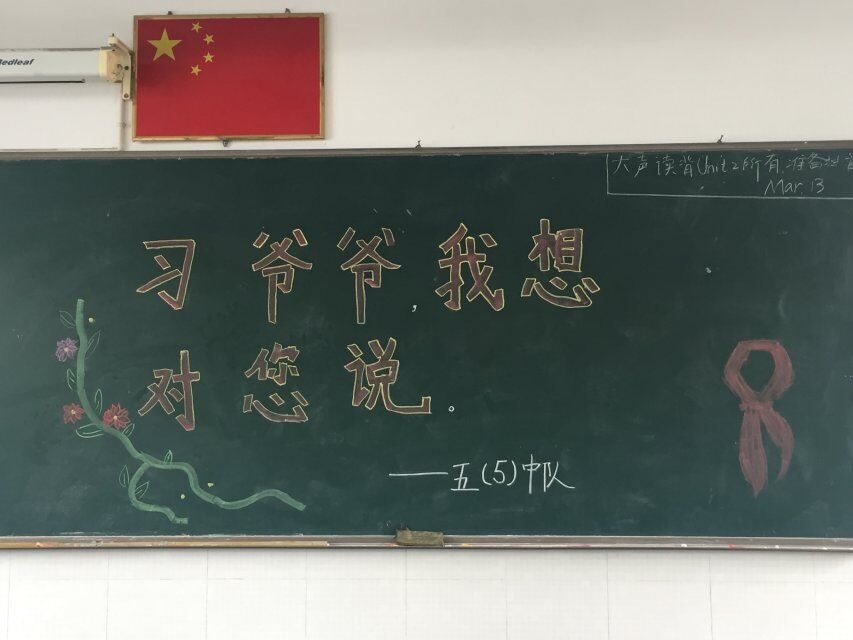 Redleaf
大声读背Unit 2所有,准备
Mar. 13
习爷爷,我想
对您说。
——五(5)中队